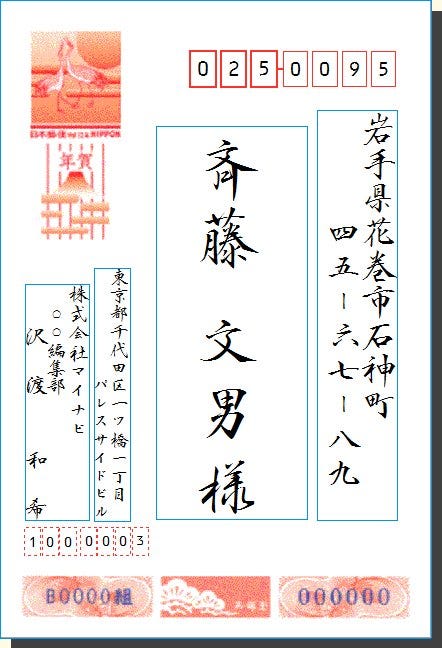 025-0095
岩手県花巻市石神町
四五ー六七ー八九
斉藤 文男様
東京都千代田区一ツ橋一丁目
パレスサイドビル
株式会社マイナビ
○○編集部
沢渡 和希
1000003
NIPPON
年賀
B0000組
000000